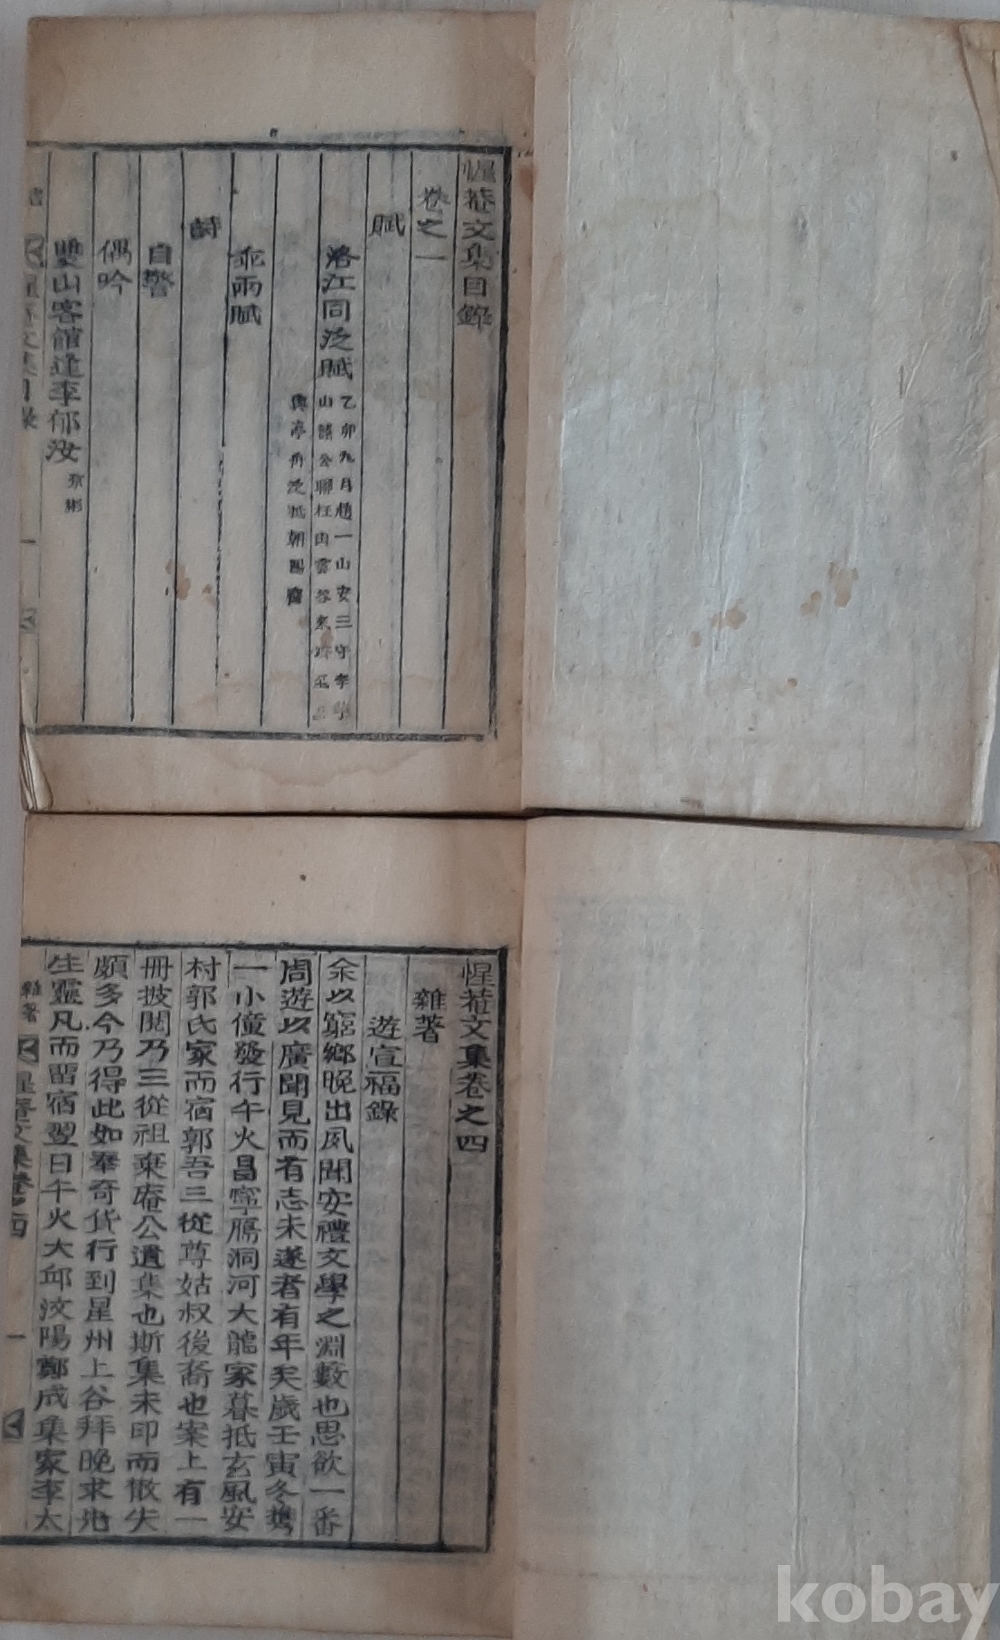 惺菴文集目錄
卷之一
賦
洛江同泛賦 乙卯九月趙一山安三守李
山諸公聯枉由雲谷來
舟泛抵朝陽齋
乖雨賦
詩
自警
偶吟
雙山客館逢李郁汝
惺菴文集目錄 一
惺菴文集卷之四
雜著
遊宣福錄
余以窮鄉晚出夙聞安禮文學之淵藪也思欲一番
周遊以廣聞見而有志未遂者有年矣歲壬寅冬携
一小僮發行午火昌寧鴈洞河大龍家暮抵玄風安
村郭氏家而宿郭吾三從尊姑叔後裔也案上有一
冊披閱乃三從祖棄庵公遺集也斯集未印而散失
頗多今乃得此如奉奇貨行到星州上谷拜晚求地
生靈凡而留宿翌日午火大邱汶陽鄭成集家李太
雜著 惺菴文集卷之四 一
kobay